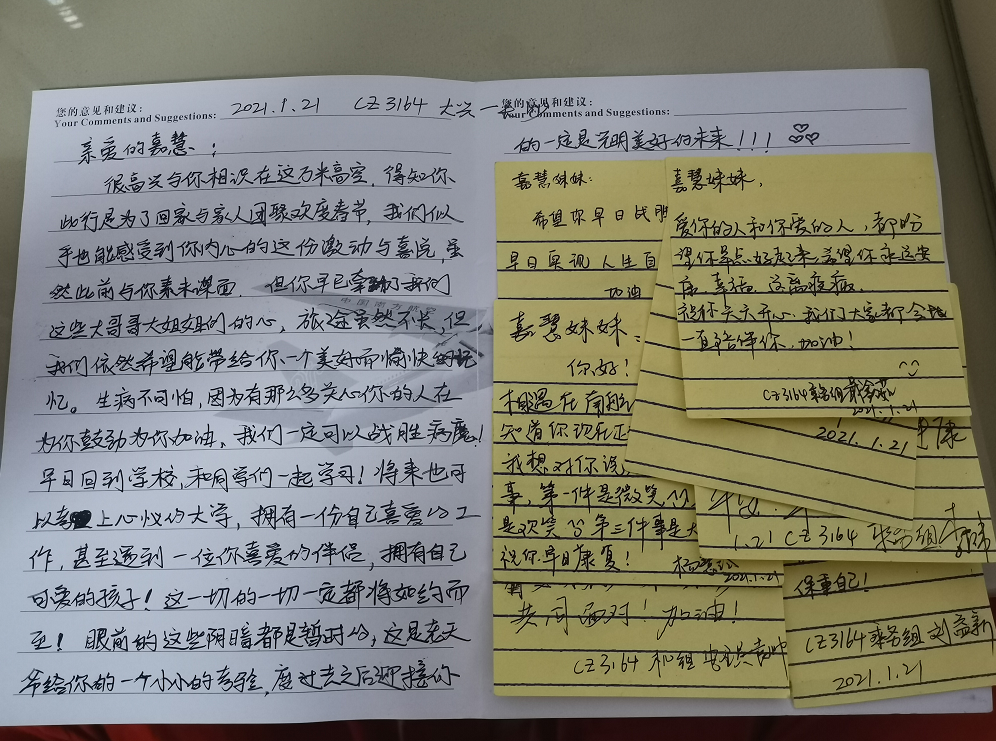 您的意见和建议：
Your Comments and Suggestions: 2021.1.21 CZ3164 大兴一长沙
亲爱的嘉慧：
很高兴与你相识在这万米高空，得知你
此行是为了回家与家人团聚欢度春节，我们似
乎也能感受到你内心的这份激动与喜悦，虽
然此前与你素未谋面，但你早已牵动了我们
这些大哥哥大姐姐们的心，旅途虽然不长，但
我们依然希望能带给你一个美好而愉快的记
忆。生病不可怕，因为有那么多关心你的人在
为你鼓劲为你加油，我们一定可以战胜病魔！
早日回到学校，和同学们一起学习！将来也可
以考上心仪的大学，拥有一份自己喜爱的工
作，甚至遇到一位你喜爱的伴侣，拥有自己
可爱的孩子！这一切的一切一定都将如约而
至！眼前的这些阴暗都是暂时的，这是老天
爷给你的一个小小的考验，度过去之后迎接你
您的意见和建议：
Your Comments and Suggestions:
的一定是光明美好的未来！！！
嘉慧妹妹：
希望你早日战胜
早日实现人生自
加油
嘉慧妹妹，
爱你的人和你爱的人，都盼
望你早点好起来，希望你永远安
康，幸福，远离疾病。
祝你天天开心，我们大家都会
一直陪伴你，加油！
CZ3164乘务组
2021.1.21
嘉慧妹妹：
你好！
相遇在南航
知道你现在正
我想对你说，
事，第一件是微笑
是欢笑 第三件事是大
祝你早日康复！
2021.1.21
2021.1.21
康
1.21 CZ3164 乘务组
共同面对！加油！
CZ3164 机组
保重自己！
CZ3164乘务组 刘益新
2021.1.21